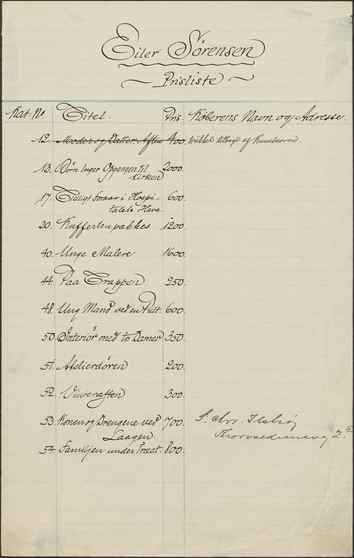 Eiler Sørensen
Prisliste
Kat. No Titel. Pris Køberens Navn og Adresse.
12. Moder og Datter. Aften 400.
13. Børn leger Opgangen til Kirken 2000.
17. Tidligt Foraar i Hospitalets Have 600.
20. Kufferten pakkes 1200.
40. Unge Malere 1600.
44. Paa Trappen 250.
48. Ung Mand ved en Pult 600.
50. Interiør med to Damer 350.
51. Atelierdøren 200.
52. Vinteraften 300.
53. Konen og Drengene ved Laagen 700.
54. Familjen under Træet. 800.